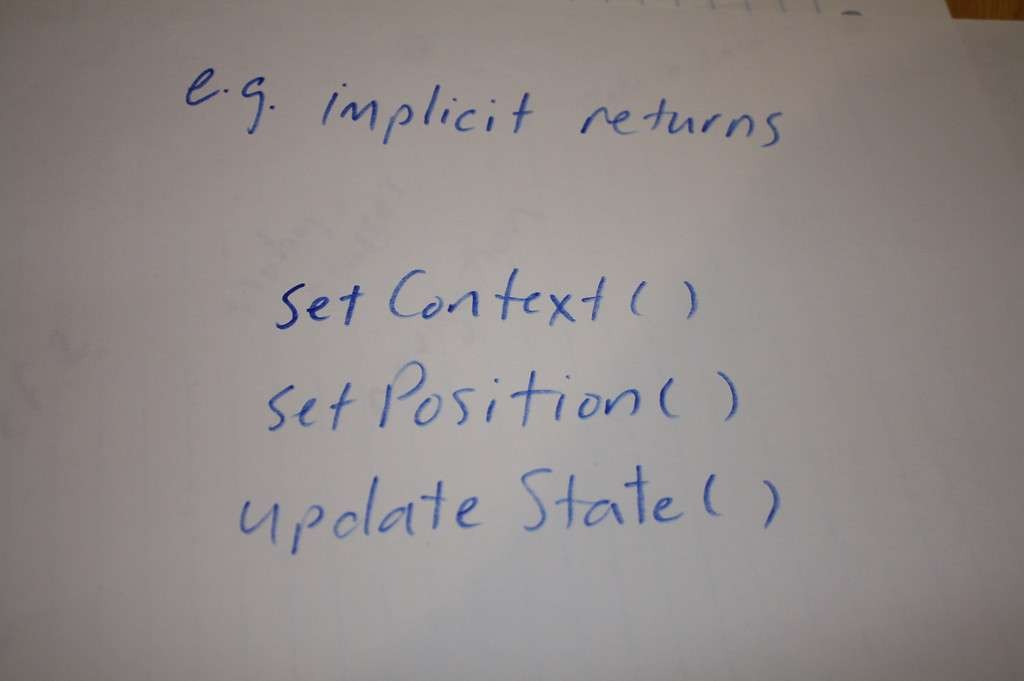 e.g. implicit returns
setContext()
setPosition()
updateState()